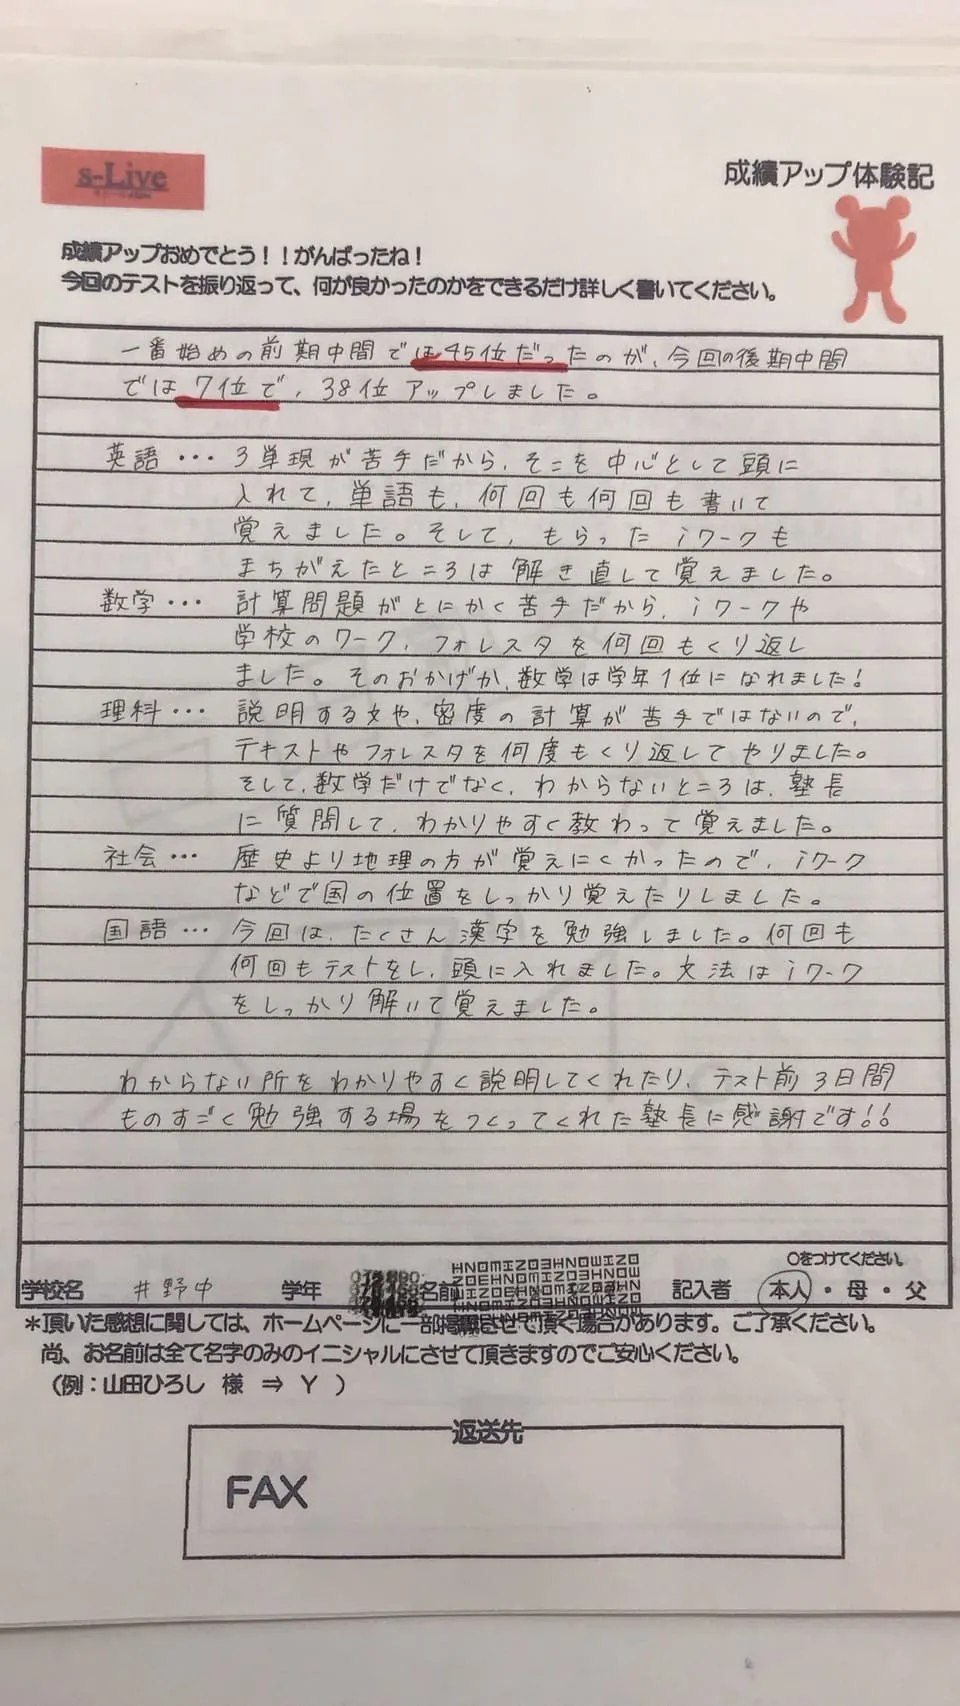 s-Live
成績アップ体験記
成績アップおめでとう！！がんばったね！
今回のテストを振り返って、何が良かったのかをできるだけ詳しく書いてください。
一番始めの前期中間では45位だったのが、今回の後期中間
では7位で、38位アップしました。
英語・・・3単現が苦手だから、そこを中心として頭に
入れて、単語も、何回も何回も書いて
覚えました。そして、もらったiワークも
まちがえたところは解き直して覚えました。
数学・・・計算問題がとにかく苦手だから、iワークや
学校のワーク、フォレスタを何回もくり返し
ました。そのおかげか、数学は学年1位になれました!
理科・・・説明する文や、密度の計算が苦手ではないので、
テキストやフォレスタを何度もくり返してやりました。
そして、数学だけでなく、わからないところは、塾長
に質問して、わかりやすく教わって覚えました。
社会・・・歴史より地理の方が覚えにくかったので、iワーク
などで国の位置をしっかり覚えたりしました。
国語・・・今回は、たくさん漢字を勉強しました。何回も
何回もテストをし、頭に入れました。文法はiワーク
をしっかり解いて覚えました。
わからない所をわかりやすく説明してくれたり、テスト前3日間
ものすごく勉強する場をつくってくれた塾長に感謝です!!
○をつけてください。
学校名 井野中 学年 名前 記入者 本人・母・父
＊頂いた感想に関しては、ホームページに一部掲載させて頂く場合があります。ご了承ください。
尚、お名前は全て名字のみのイニシャルにさせて頂きますのでご安心ください。
（例：山田ひろし 様 ⇒ Y ）
返送先
FAX